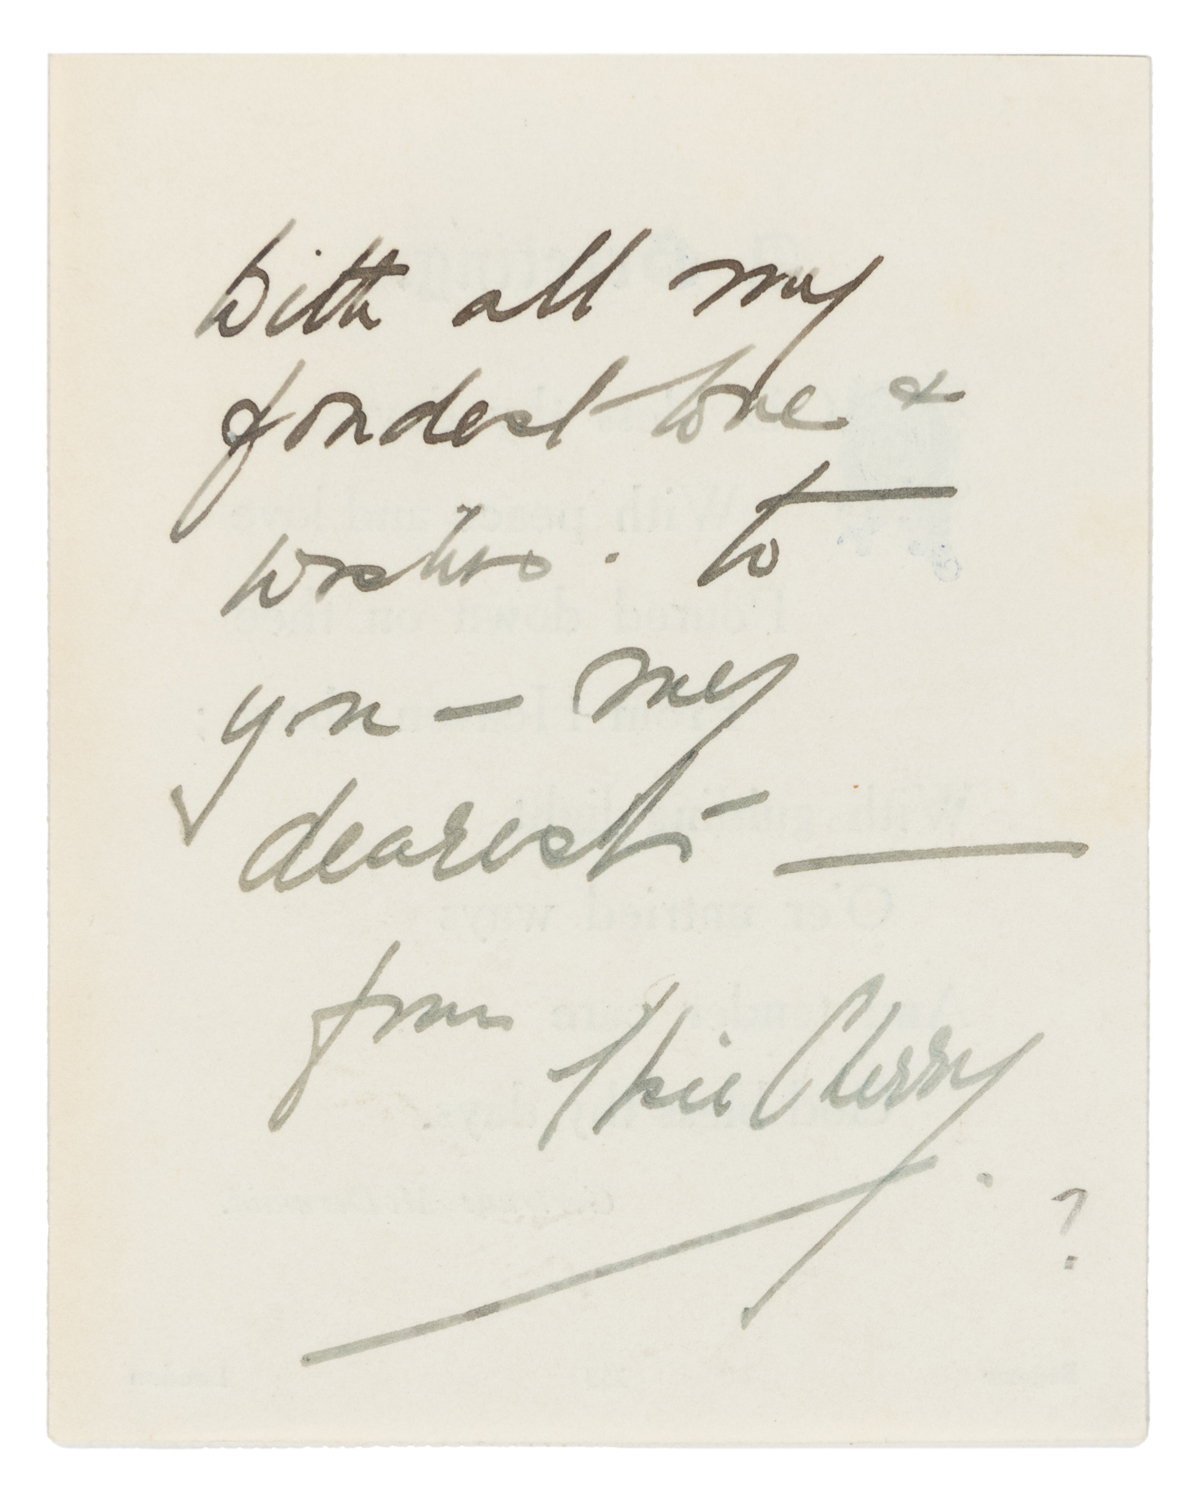 With all my
fondest love &
wishes. to
you — my
dearest —
from Cherry
?